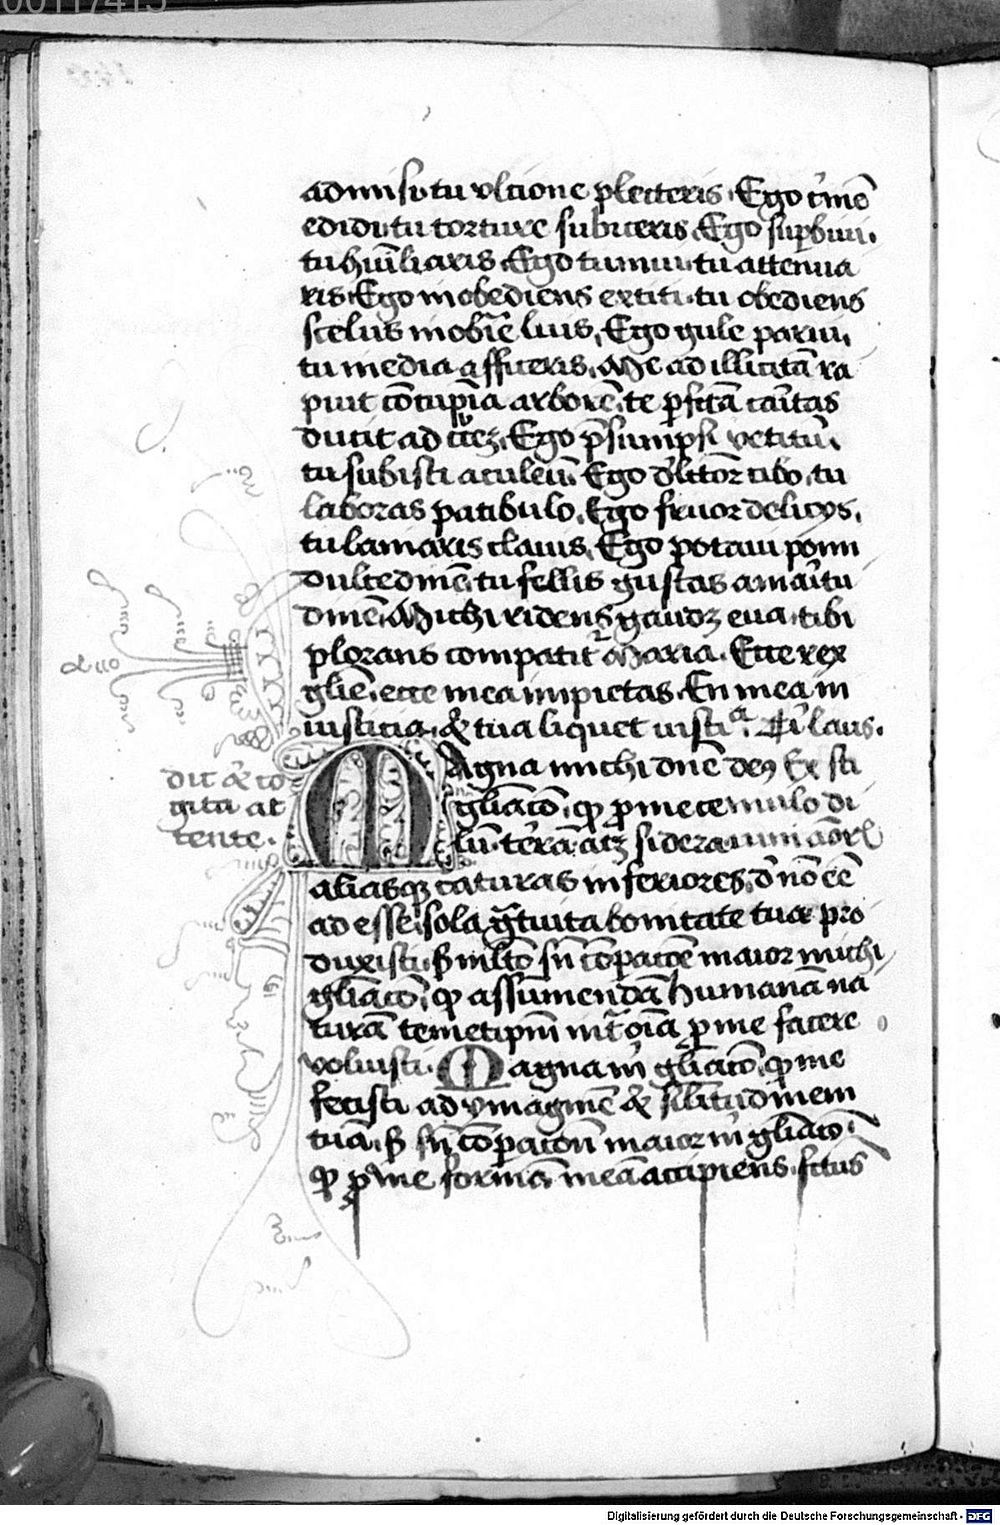 admisi·tu vlcione plecteris. Ego c̓mē
edidi·tu torture subiceris. Ego sup̱biui.
tu hūiliaris. Ego tumui·tu attenua
ris. Ego inobediens extiti·tu obediens
scelus inobīe luis. Ego gule parui,
tu media afficeris. Me ad illicitā ra
puit cōcupīa arborē, te ꝑfctā caītas
ducit ad cͬcē. Ego p̄sumpsi vetitū.
tu subisti aculeū. Ego dlector cibo, tu
laboras patibulo. Ego fruor delicijs,
tu lamaris clauis. Ego potaui pomi
dulcedinē·tu fellis gustas amaitu
dinē. Michi ridens gaudꝫ eua·tibi
plorans compatitͬ Maria. Ecce rex
gliē, ecce mea impietas. En mea in
iusticia, & tua liquet iusticᵃ.
dic & co
gita at
tente.
Magna michi dn̄e deꝰ est
gliācō, ꝙ ꝓ me celum solo di
alias qꝫ caturas inferiores, d̓ nō eē
ad esse, sola ḡtuita bonitate tua pro
duxisti. Sꝫ mlto sn̄ cōꝑacōe maior michi
gliācō, ꝙ assumendā humanā na
turā temetipm̄ int̄ oīa ꝓ me facere
voluisti. Magna m̓ gliācō, ꝙ me
fecisti ad ymaginē & silitudinem
tuā. Sꝫ sn̄ cōꝑacōn maior m̓ gliācō.
ꝙ ꝓ me formā meā accipiens, fctus
Digitalisierung gefördert durch die Deutsche Forschungsgemeinschaft - DFG